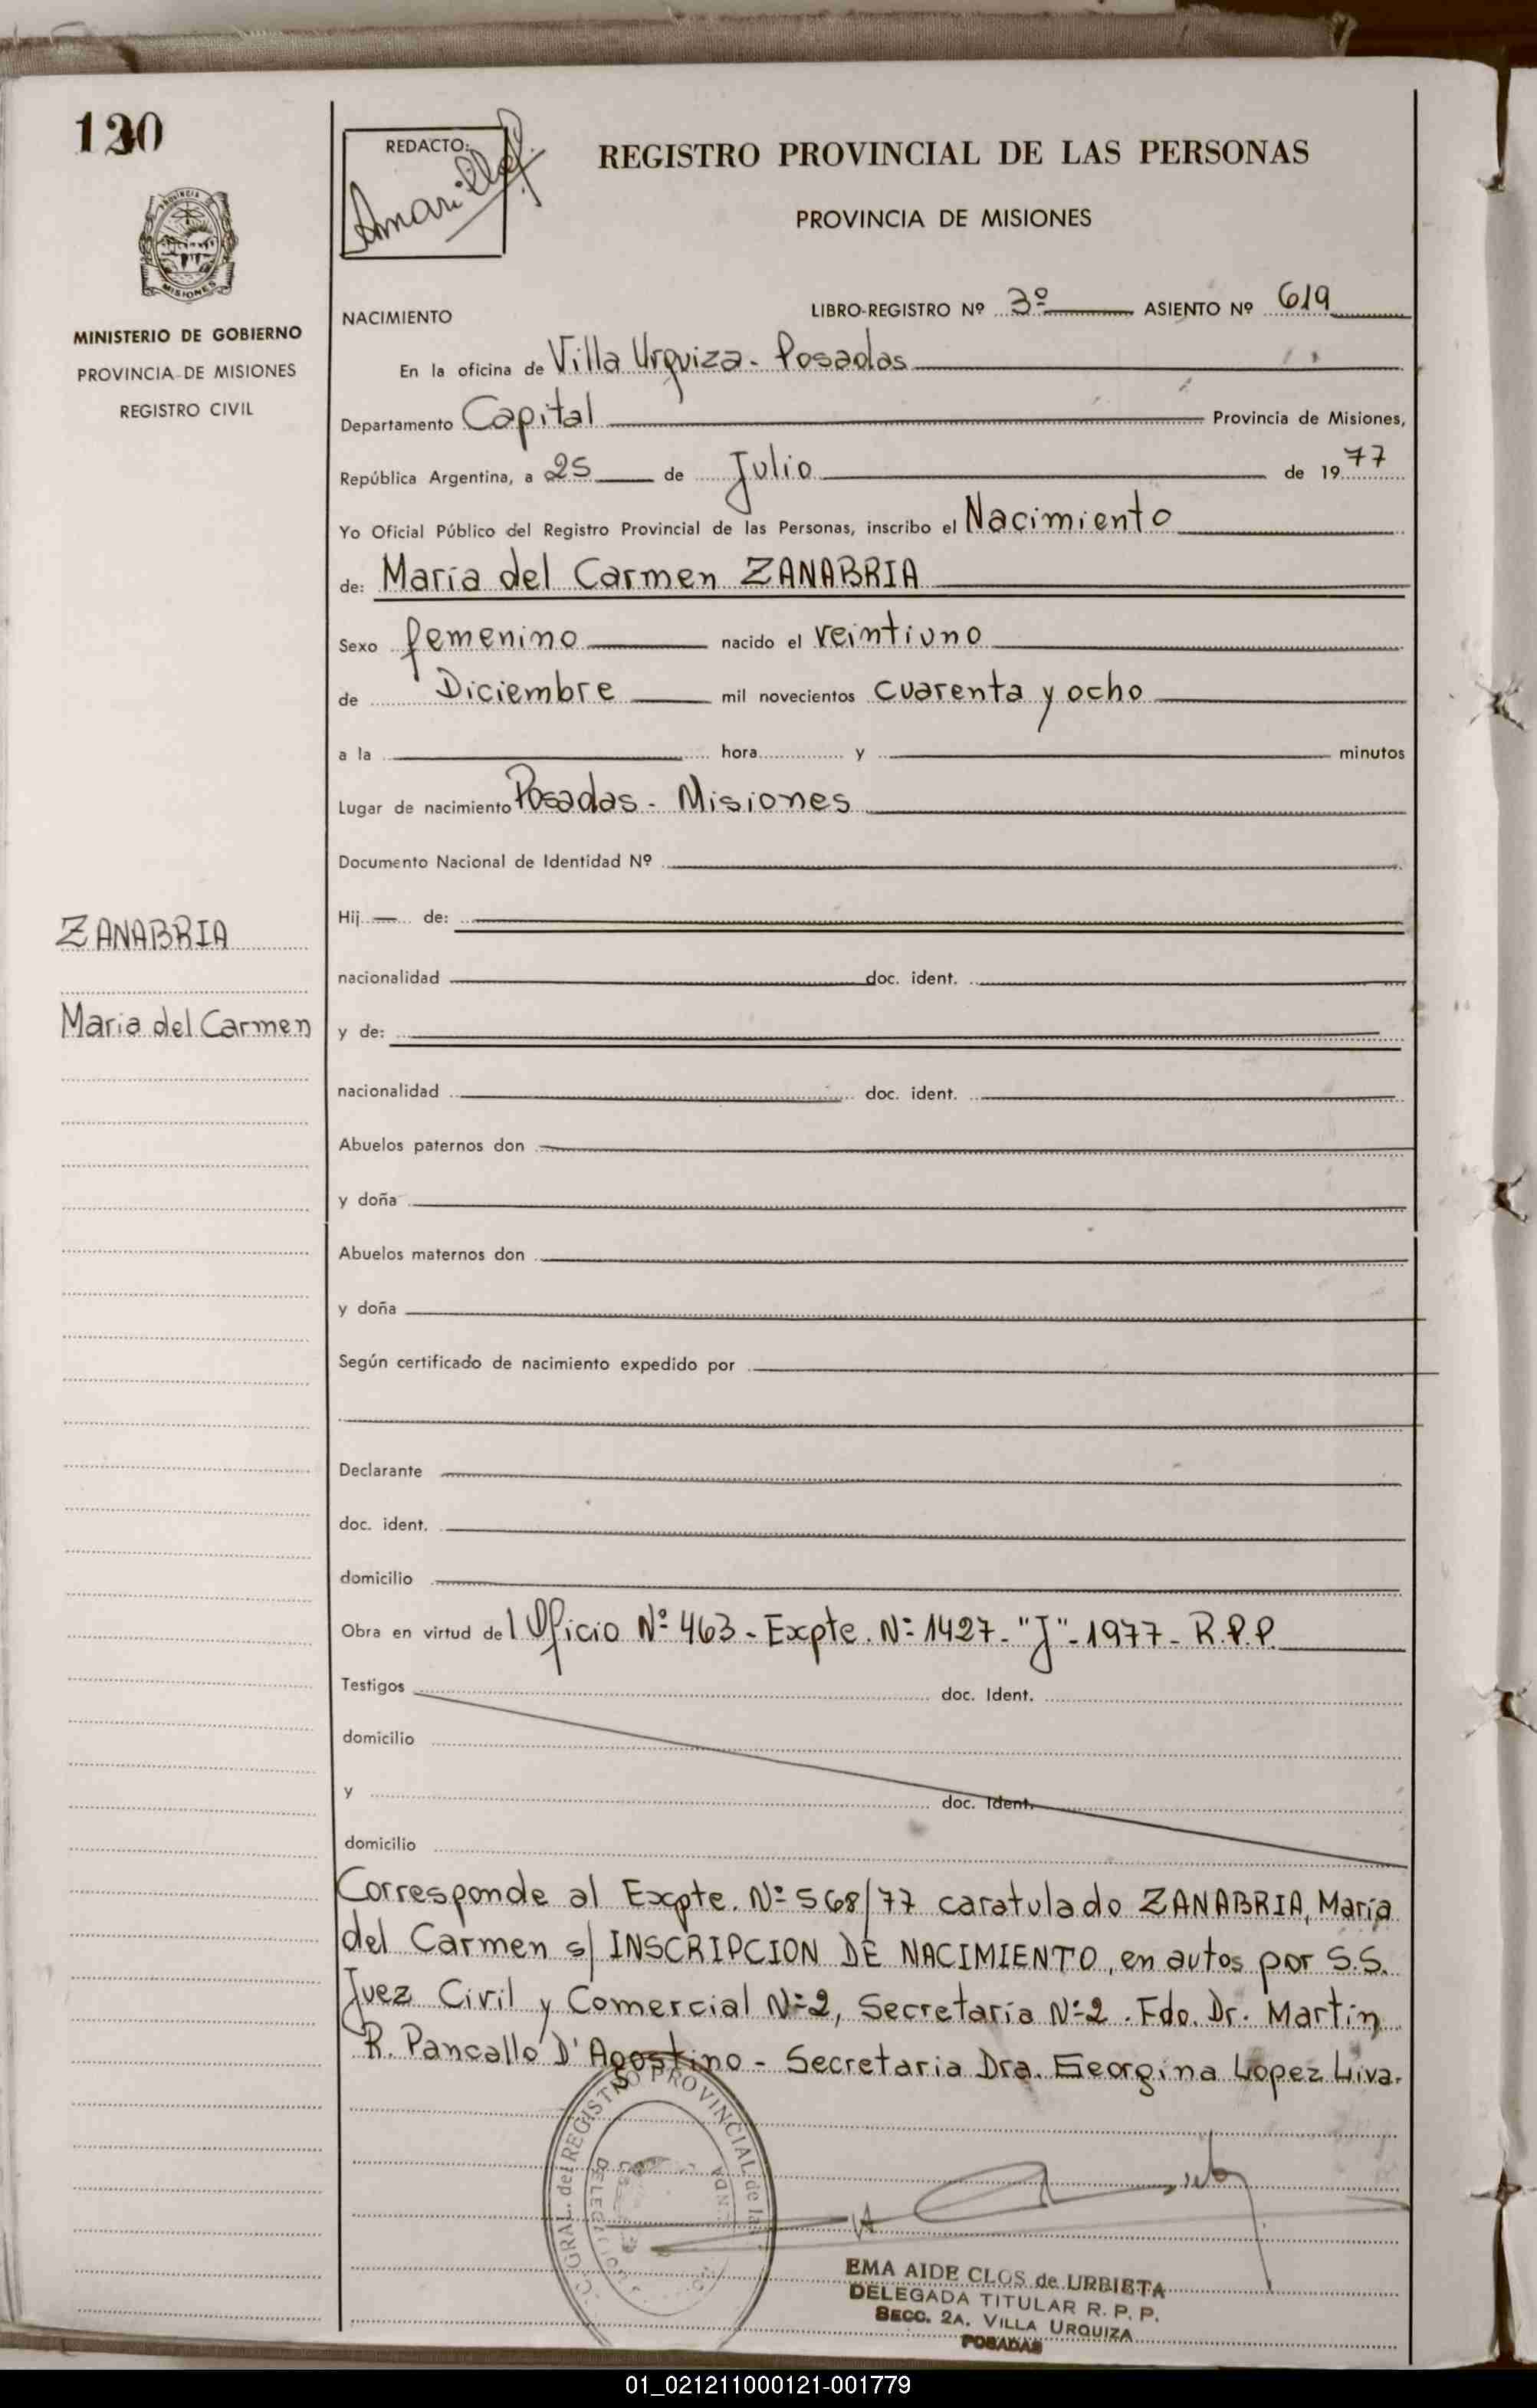 120
REDACTO:
REGISTRO PROVINCIAL DE LAS PERSONAS
PROVINCIA DE MISIONES
MISIONES
MINISTERIO DE GOBIERNO
PROVINCIA DE MISIONES
REGISTRO CIVIL
NACIMIENTO LIBRO-REGISTRO Nº 3º ASIENTO Nº 619
En la oficina de Villa Urquiza - Posadas
Departamento Capital Provincia de Misiones,
República Argentina, a 25 de Julio de 1977
Yo Oficial Público del Registro Provincial de las Personas, inscribo el Nacimiento
de: María del Carmen ZANABRIA
Sexo femenino nacido el veintiuno
de Diciembre mil novecientos cuarenta y ocho
a la hora y minutos
Lugar de nacimiento Posadas - Misiones
Documento Nacional de Identidad Nº
Hij de:
ZANABRIA
nacionalidad doc. ident.
Maria del Carmen
y de:
nacionalidad doc. ident.
Abuelos paternos don
y doña
Abuelos maternos don
y doña
Según certificado de nacimiento expedido por
Declarante
doc. ident.
domicilio
Obra en virtud del Oficio Nº 463 - Expte. Nº 1427 - "J" - 1977 - R.P.P.
Testigos doc. Ident.
domicilio
y doc. Ident.
domicilio
Corresponde al Expte. Nº 568/77 caratulado ZANABRIA, María
del Carmen s/ INSCRIPCION DE NACIMIENTO, en autos por S.S.
Juez Civil y Comercial Nº 2, Secretaría Nº 2. Fdo. Dr. Martín
R. Pancallo D'Agostino - Secretaria Dra. Georgina Lopez Liva.
GRAL. del REGISTRO PROVINCIAL de las
EMA AIDE CLOS de URBIETA
DELEGADA TITULAR R. P. P.
SECC. 2A. VILLA URQUIZA
POSADAS
01_021211000121-001779